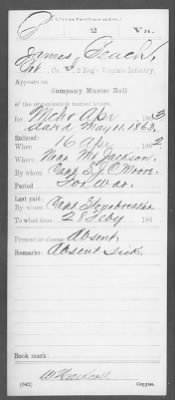 Confederate.
2 Va.
James
Pvt, Co. I, 2 Reg't Virginia Infantry.
Appears on
Company Muster Roll
of the organization named above,
for Mch & Apr 186 3,
dated May 11. 1863.
Enlisted:
When 16 Apr 186 2
Where Near Mt Jackson.
By whom Capt S. J. C. Moore.
Period For War.
Last paid:
By whom Capt
To what time 28 Feby 186
Present or absent Absent.
Remarks: Absent sick.
Book mark:
(642)
Copyist.